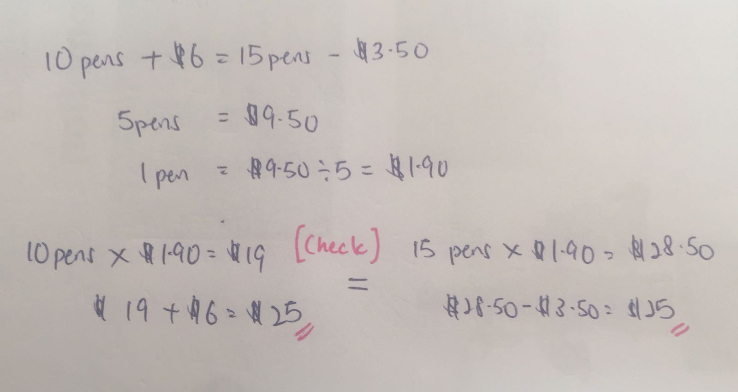 10 pens + $6 = 15 pens - $3.50
5 pens = $9.50
1 pen = $9.50 ÷ 5 = $1.90
10 pens x $1.90 = $19 [Check] 15 pens x $1.90 = $28.50
=
$19 + $6 = $25 $28.50 - $3.50 = $25